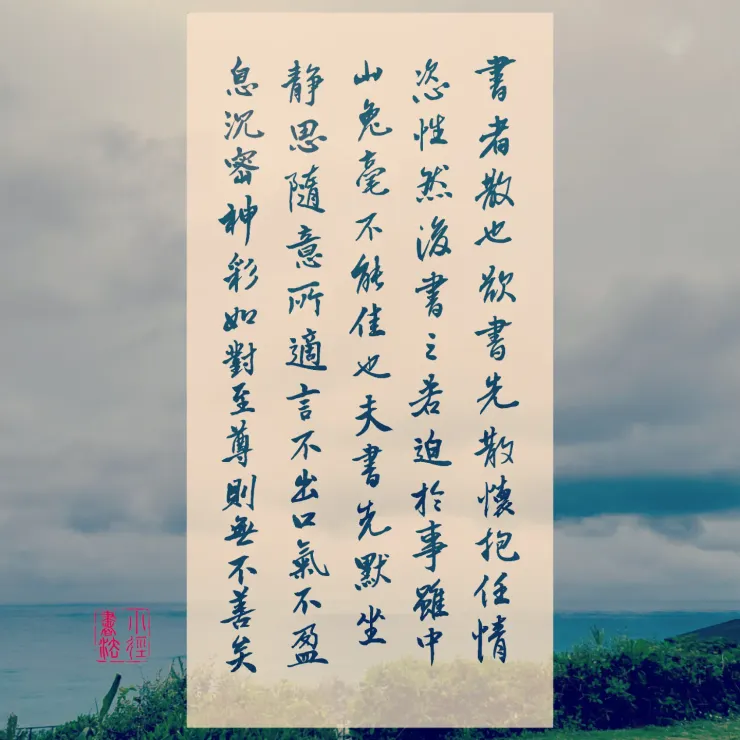 書者散也欲書先散懷抱任情
恣性然後書之若迫於事雖中
山兔毫不能佳也夫書先默坐
静思隨意所適言不出口氣不盈
息沉密神彩如對至尊則無不善矣